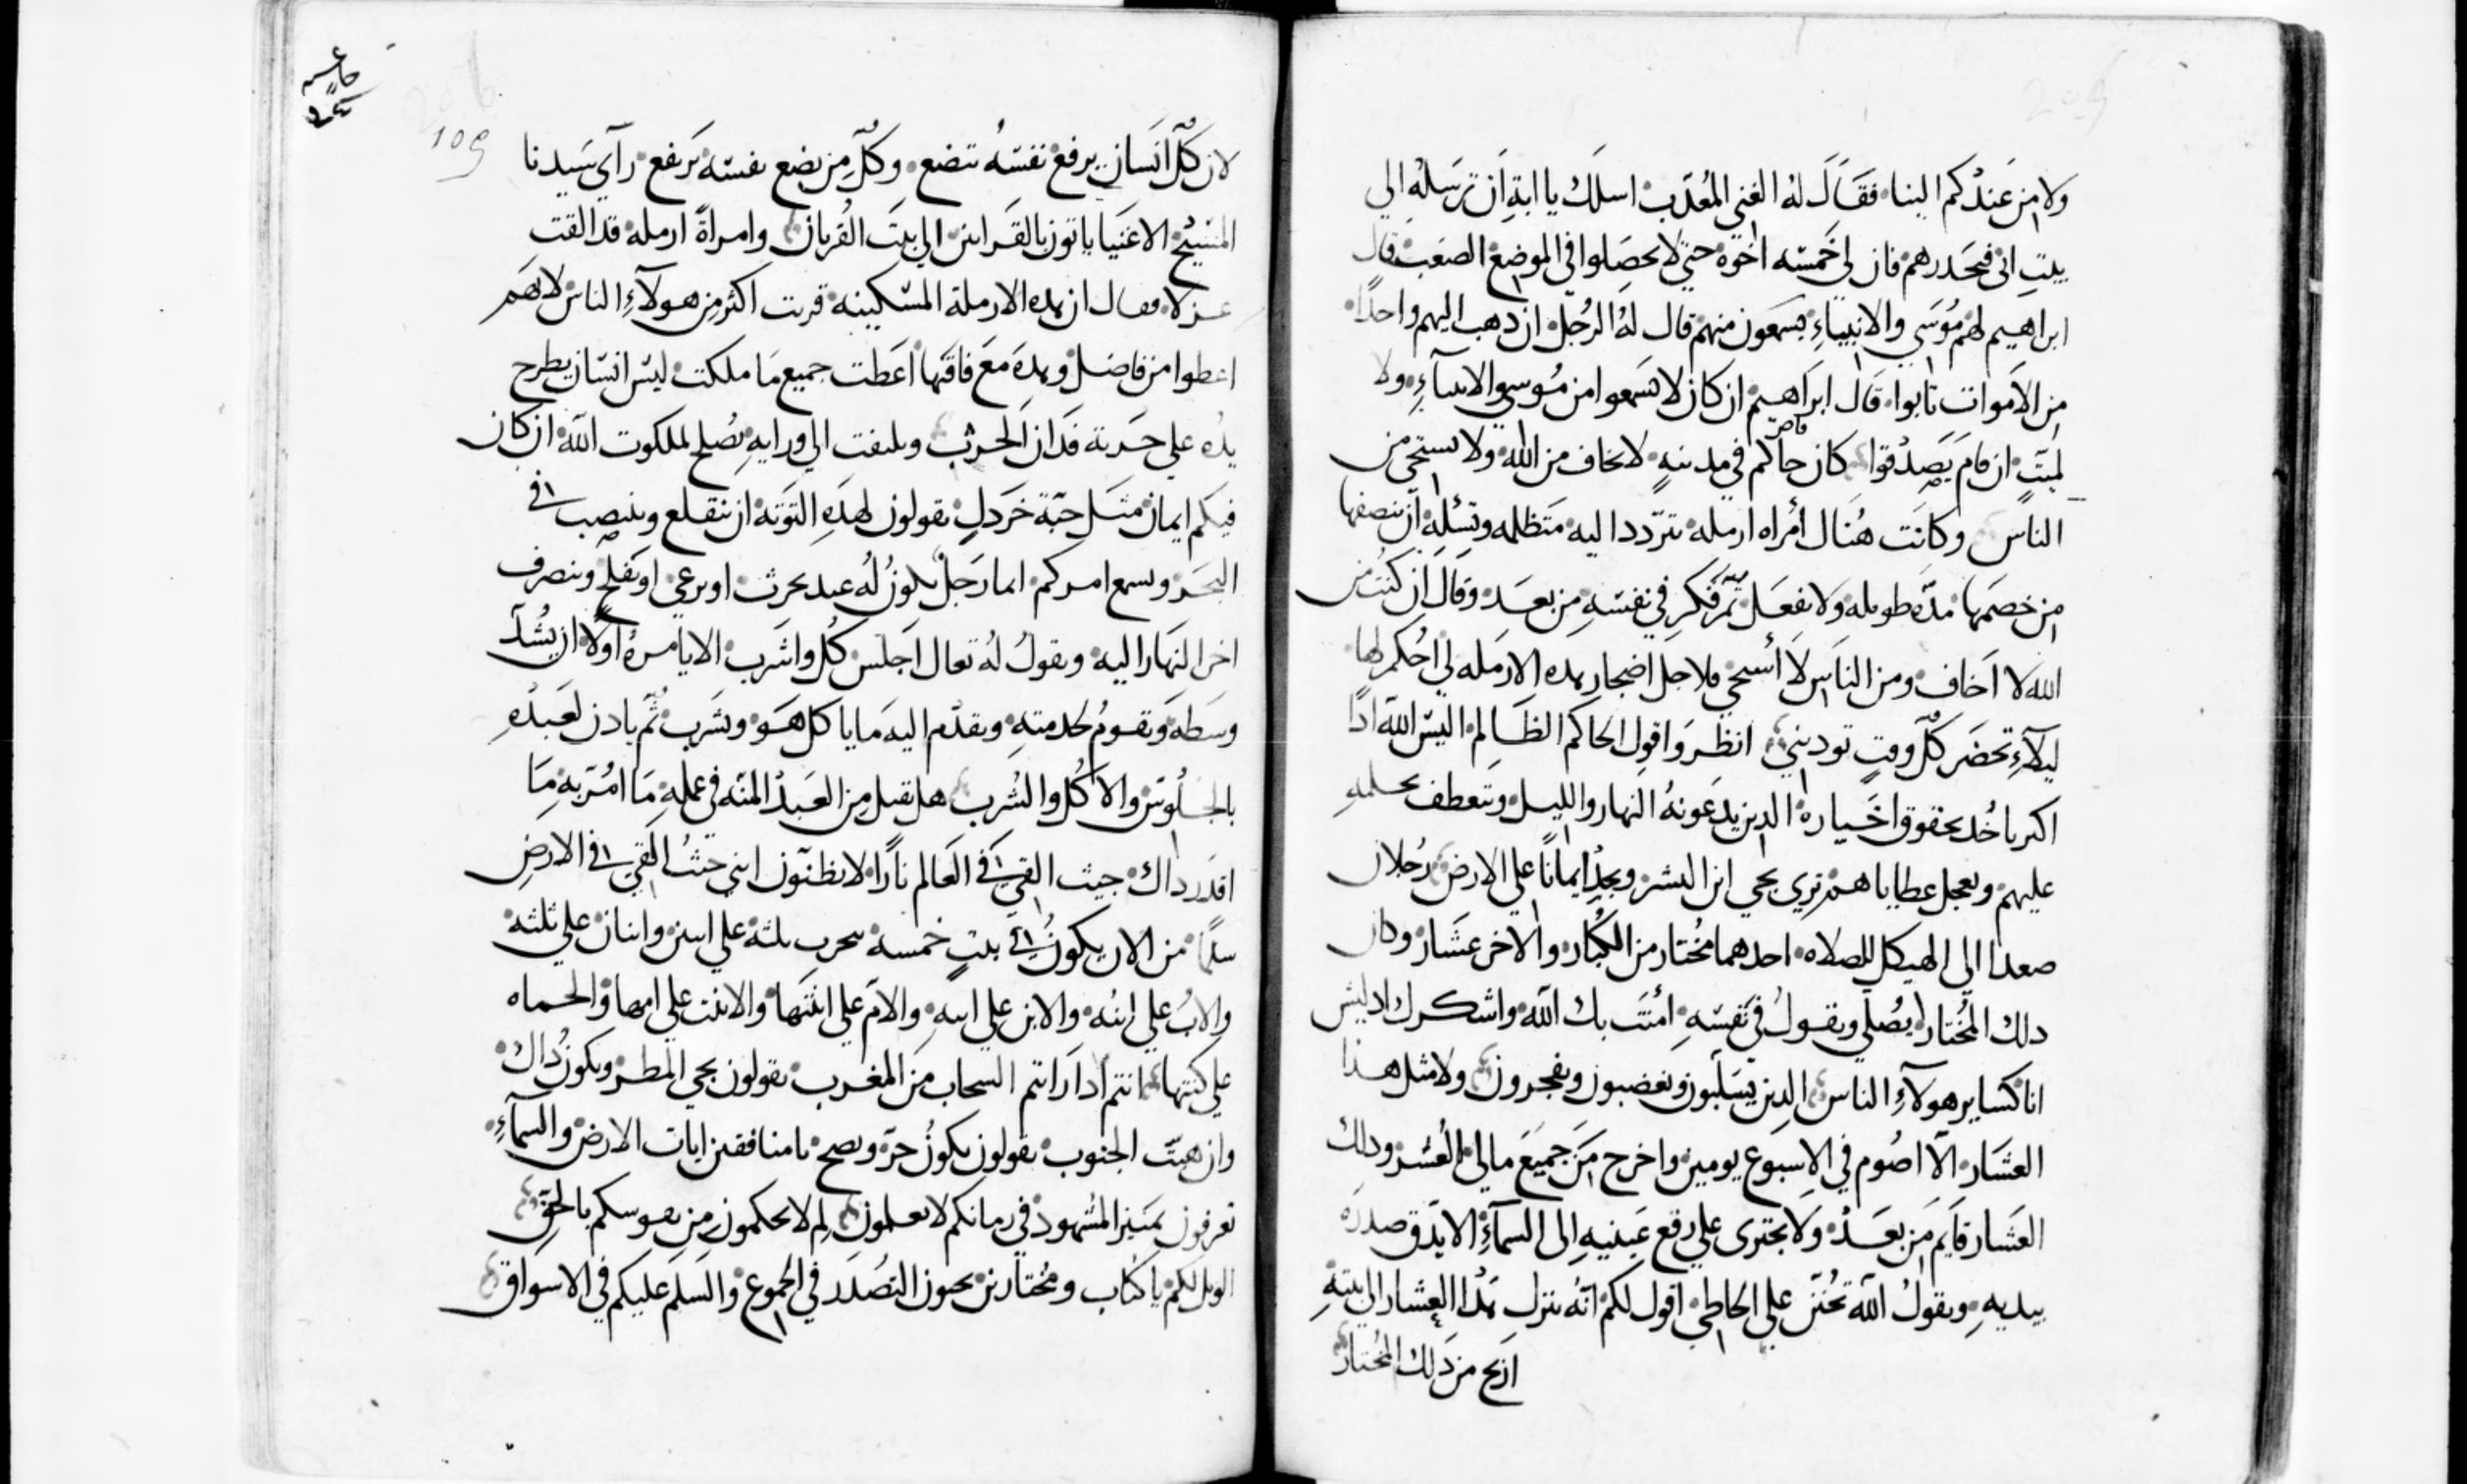 ولا من عندكم الينا. فقال له الغني المعدب اسلك يا ابة ان ترسله الي
بيت ابي فيحدرهم فان لي خمسه اخوة حتي لا يحصلوا في الموضع الصعب قال
ابراهيم لهم موسي والانبياء يسمعون منهم قال له الرجل ان دهب اليهم واحدا
من الاموات تابوا. قال ابراهيم ان كان لا سمعوا من موسي والانبياء ولا
لميت ان قام يصدقوا كان حاكم في مدينة لا يخاف من الله ولا يستحي من
قاضي
الناس وكانت هناك أمراه ارمله تتردد اليه متظلمه وتسئله ان ينصفها
من خصمها مدة طويله ولا يفعل ثم فكر في نفسه من بعد وقال ان كنت من
الله لا اخاف ومن الناس لا أستحي فلاجل اضجار هده الارمله لي احكم لها
ليلاء تحضر كل وقت تودينى انظروا قول الحاكم الظالم اليس الله ادا
اكبر ياخد بحقوق اخياره الدين يدعونه النهار والليل وتتعطف بحلمه
عليهم ويعجل عطاياهم تري يجي ابن البشر ويجد ايمانا علي الارض رجلان
صعدا الي الهيكل للصلاه احدهما مختار من الكبار والاخر عشار وكان
دلك المختار يصلي ويقول في نفسه امنت بك الله واشكرك اد ليس
انا كساير هولاء الناس الدين يسلبون ويغضبون ويفجرون ولا مثل هذا
العشار الا اصوم في الاسبوع يومين واخرج من جميع مالي العشر ودلك
العشار قايم من بعد ولا يجترى علي رفع عينيه الى السماء الا يدق صدره
بيديه ويقول الله تحنن علي الخاطي اقول لكم انه ينزل هدا العشار الي بيته
اربح من دلك المختار
لان كل انسان يرفع نفسه تتضع وكل من يضع نفسه ترتفع راي سيدنا
المسيح الاغنيا ياتون بالقرابين الي بيت القربان وامراة ارمله قد القت
عزلا فقال ان هده الارملة المسكينه قربت اكثر من هولاء الناس لانهم
اعطوا من فاضل وهده مع فاقتها اعطت جميع ما ملكت ليس انسان يطرح
يده علي فدان الحرث ويلتفت الي ورايه يصلح لملكوت الله ان كان
فيكم ايمان مثل حبة خردل يقولون لهذه التوته ان تنقلع وتنصب في
البحر ويسمع امركم ايما رجل يكون له عبد يحرث او يرعي او يفلح وينصرف
اخر النهار اليه ويقول له تعال اجلس كل واشرب الا يامره اولا ان يشد
وسطه ويقوم لخدمته ويقدم اليه ما ياكل هو ويشرب ثم يادن لعبده
بالجلوس والاكل والشرب هل يقبل من العبد المنه في عمله ما امر به ما
اقدر داك جيت القي في العالم نارا لا يظنون انني جيت القي في الارض
سلما من الان يكون في بيت خمسه يتحرب ثلثة علي اثنين واثنان علي ثلثه
والاب علي ابنه والابن علي ابيه والام علي ابنتها والابنت علي امها والحماه
علي كنتها انتم ادا رايتم السحاب من المغرب يقولون يجي المطر ويكون داك
وان هبت الجنوب يقولون يكون حر ويصح يا منافقين ايات الارض والسماء
تعرفون تميز المشهود في زمانكم لا تعلمون لم لا يحكمون من نفوسكم بالحق
الويل لكم يا كتاب ومختارين يحبون التصدر في الجموع والسلم عليكم في الاسواق
109